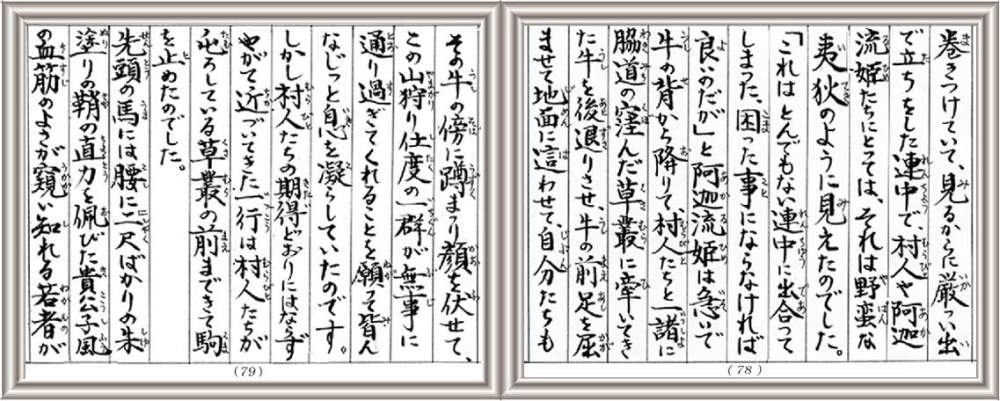 巻きつけていて、見るからに厳つい出
で立ちをした連中で、村人や阿迦
流姫たちにとっては、それは野蛮な
夷狄のように見えたのでした。
「これはとんでもない連中に出合って
しまった、困った事にならなければ
良いのだが」と阿迦流姫は急いで
牛の背から降りて、村人たちと一諸に
脇道の窪んだ草叢に牽いてき
た牛を後退りさせ、牛の前足を屈
ませて地面に這わせて、自分たちも
(78)
その牛の傍に蹲まり顔を伏せて、
この山狩り仕度の一群が無事に
通り過ぎてくれることを願って皆ん
なじっと息を凝らしていたのです。
しかし村人たちの期得どおりにはならず
やがて近づいてきた一行は村人たちが
屯ろしている草叢の前まできて駒
を止めたのでした。
先頭の馬には腰に二尺ばかりの朱
塗りの鞘の直刀を佩びた貴公子風
の血筋のよさが窺い知れる若者が
(79)